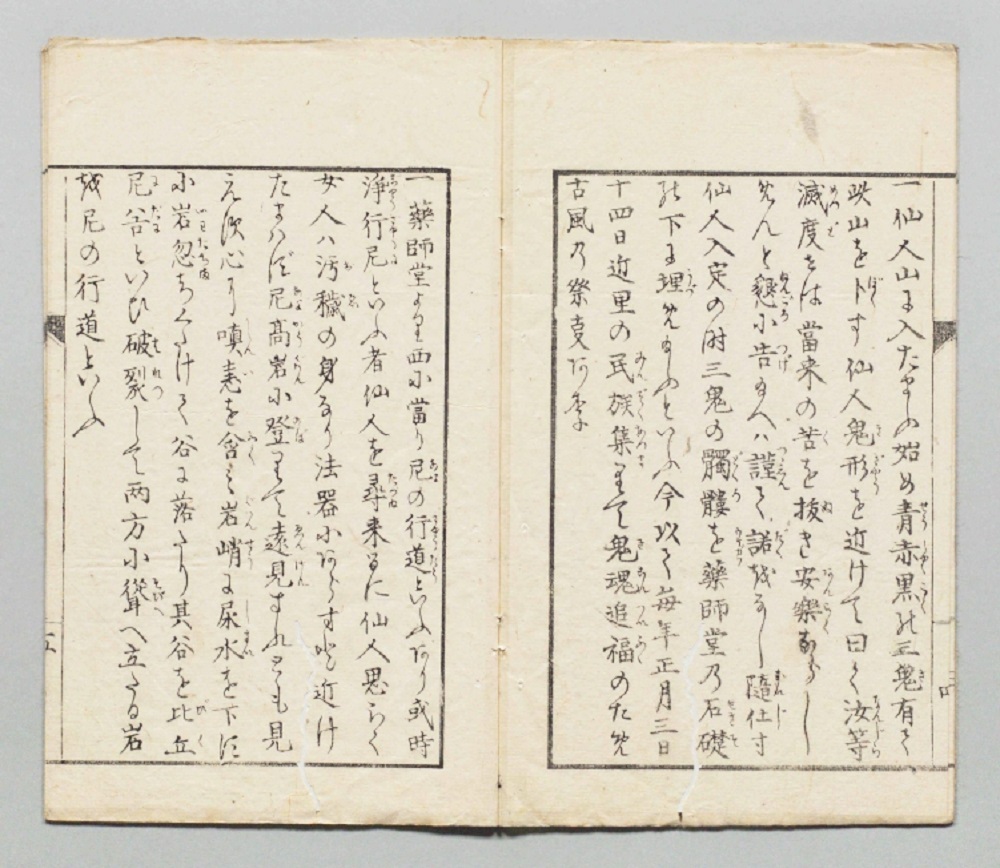 一仙人山に入たまふ始め青赤黒の三鬼有て
此山を卜す仙人鬼形を近けて曰く汝等
滅度せは當来の苦を抜き安樂ならし
めんと懇に告給へハ謹て諾をなし隨仕す
仙人入定の时三鬼の髑髏を藥師堂乃石礎
の下に埋めたまふといふ今以て毎年正月三日
十四日近里の民族集りて鬼魂追福のため
古風乃祭事
一藥師堂より西に當り尼の行道といふあり或時
浄行尼といふ者仙人を尋来るに仙人思らく
女人ハ汚穢の身なり法器にあらす近け
たまハす尼高岩に登りて遠見すれとも見
えす心に嗔恚を含み岩峭に尿水を下す
に岩忽ちくたけて谷に落たり其谷を比丘
尼谷といひ破裂して两方に聳へ立たる岩
を尼の行道といふ